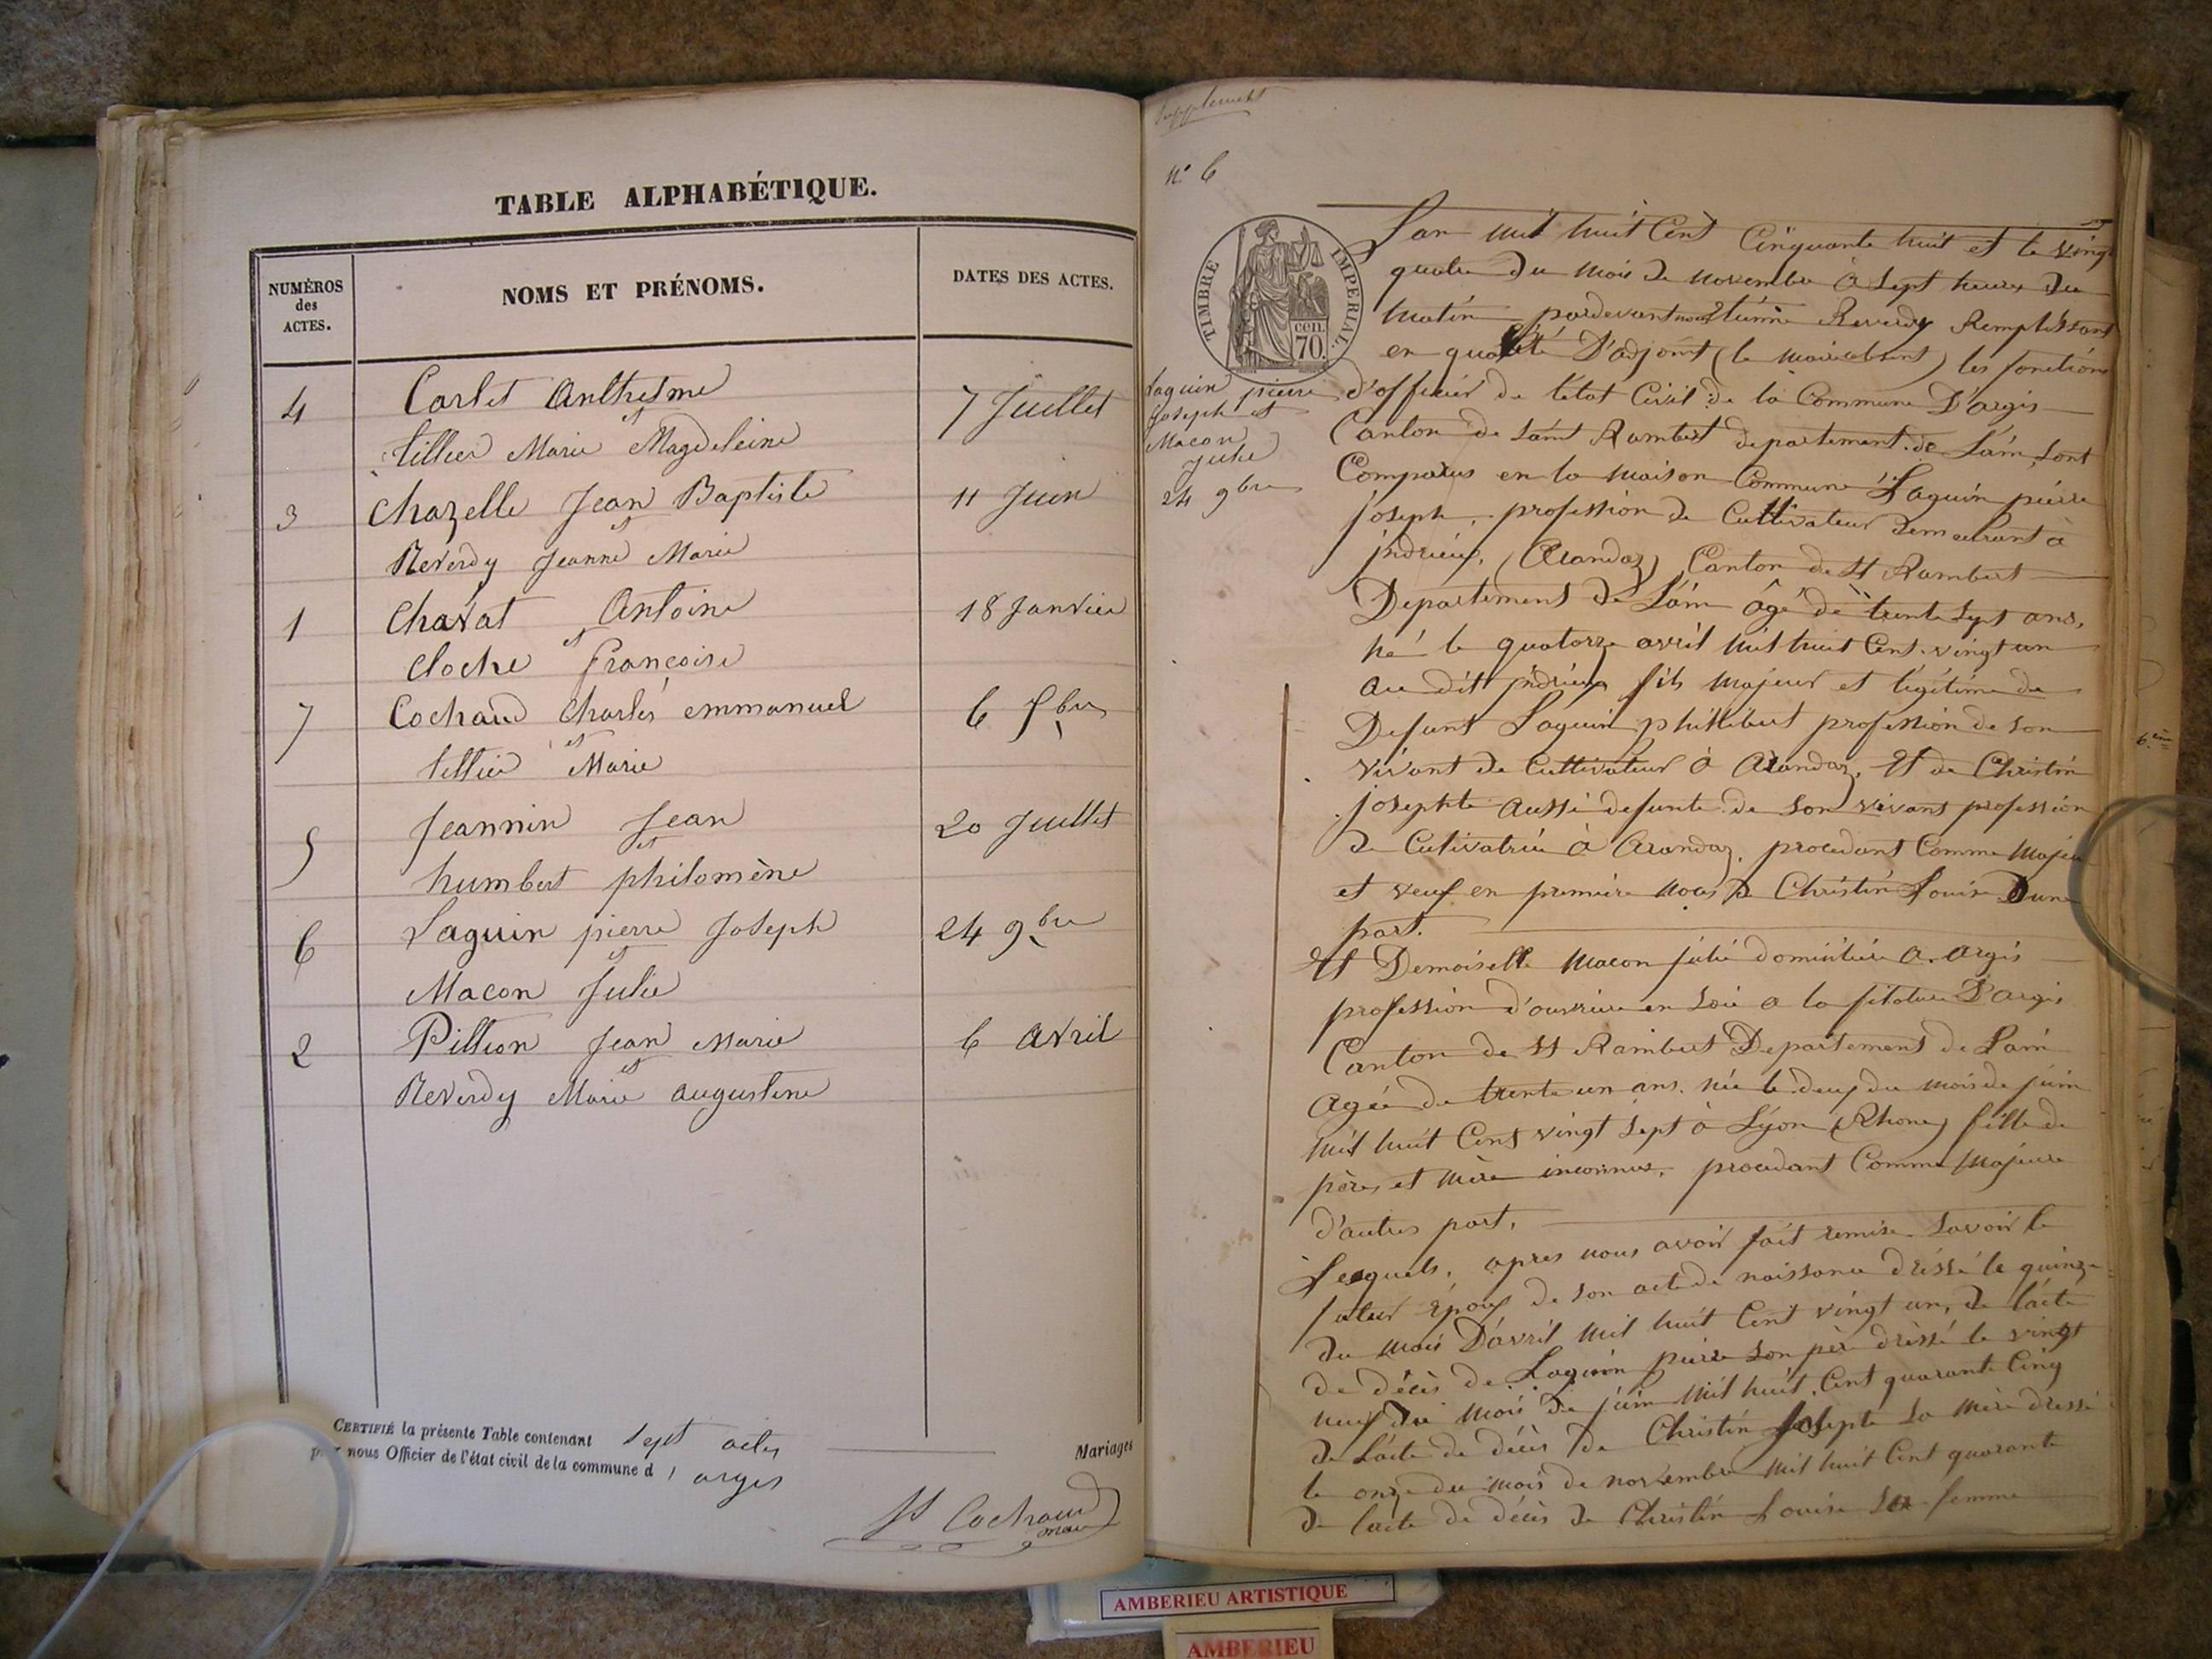 TABLE ALPHABÉTIQUE.
NUMÉROS
des
ACTES.
NOMS ET PRÉNOMS.
DATES DES ACTES.
4 Carlet Anthesme 7 Juillet
et
tillier Marie Magdeleine
3 Chazelle Jean Baptiste 11 Juin
et
Reverdy Jeanne Marie
1 Chavat Antoine 18 Janvier
et
Cloche françoise
7 Cochaud Charles emmanuel 6 bre
et
tillier Marie
5 Jeannin Jean 20 Juillet
et
humbert philomène
6 Laguin pierre Joseph 24 9bre
et
Macon Julie
2 Pittion Jean Marie 6 avril
et
Reverdy Marie augustine
CERTIFIÉ la présente Table contenant sept actes Mariages
par nous Officier de l'état civil de la commune d'arges
Cochaud
maire
Supplement
n° 6
TIMBRE IMPERIAL.
cen.
70.
Laguin pierre
Joseph et
Macon
Julie
24 9bre
Lan mil huit Cent Cinquante huit et le vingt
quatre du mois de novembre à Sept heures du
matin pardevant nous Etienne Reverdy Remplissant
en qualité D'adjoint (le maire absent) les fonctions
d'officier de l'état Civil de la Commune D'argis
Canton de saint Rambert departement de Lain, sont
Comparus en la maison Commune Laguin pierre
joseph, profession de Cultivateur demeurant à
indrieux, (Arandaz) Canton de St Rambert
Departement de Lain âgé de trente sept ans,
né le quatorze avril mil huit Cent vingt un
au dit indrieux fils majeur et légitime de
Defunt Laguin philibert profession de son
vivant de Cultivateur à Arandaz, Et de Christin
josephte aussi defunte de son vivant profession
de Cultivatrice à Arandaz, procedant Comme Majeur
et veuf en premiere noces de Christin Louise Dune
part.
Et Demoiselle Macon julie domiciliée a argis
profession d'ouvriere en soie a la filature D'argis
Canton de St Rambert Departement de Lain
Agée de trente un ans. née le deux du mois de juin
mil huit Cent vingt sept à Lyon (Rhone) fille de
père et mère inconnus, procedant Comme Majeure
d'autres part,
Lesquels, apres nous avoir fait remise savoir le
futur époux de son acte de naissance dressé le quinze
du mois D'avril mil huit Cent vingt un, de lacte
de décès de Laguin pierre son père dressé le vingt
neuf du mois de juin mil huit Cent quarante Cinq
de lacte de décès de Christin Josephte sa mère dressé
le onze du mois de novembre mil huit Cent quarante
de lacte de décès de Christin Louise sa femme
AMBERIEU ARTISTIQUE
AMBERIEU